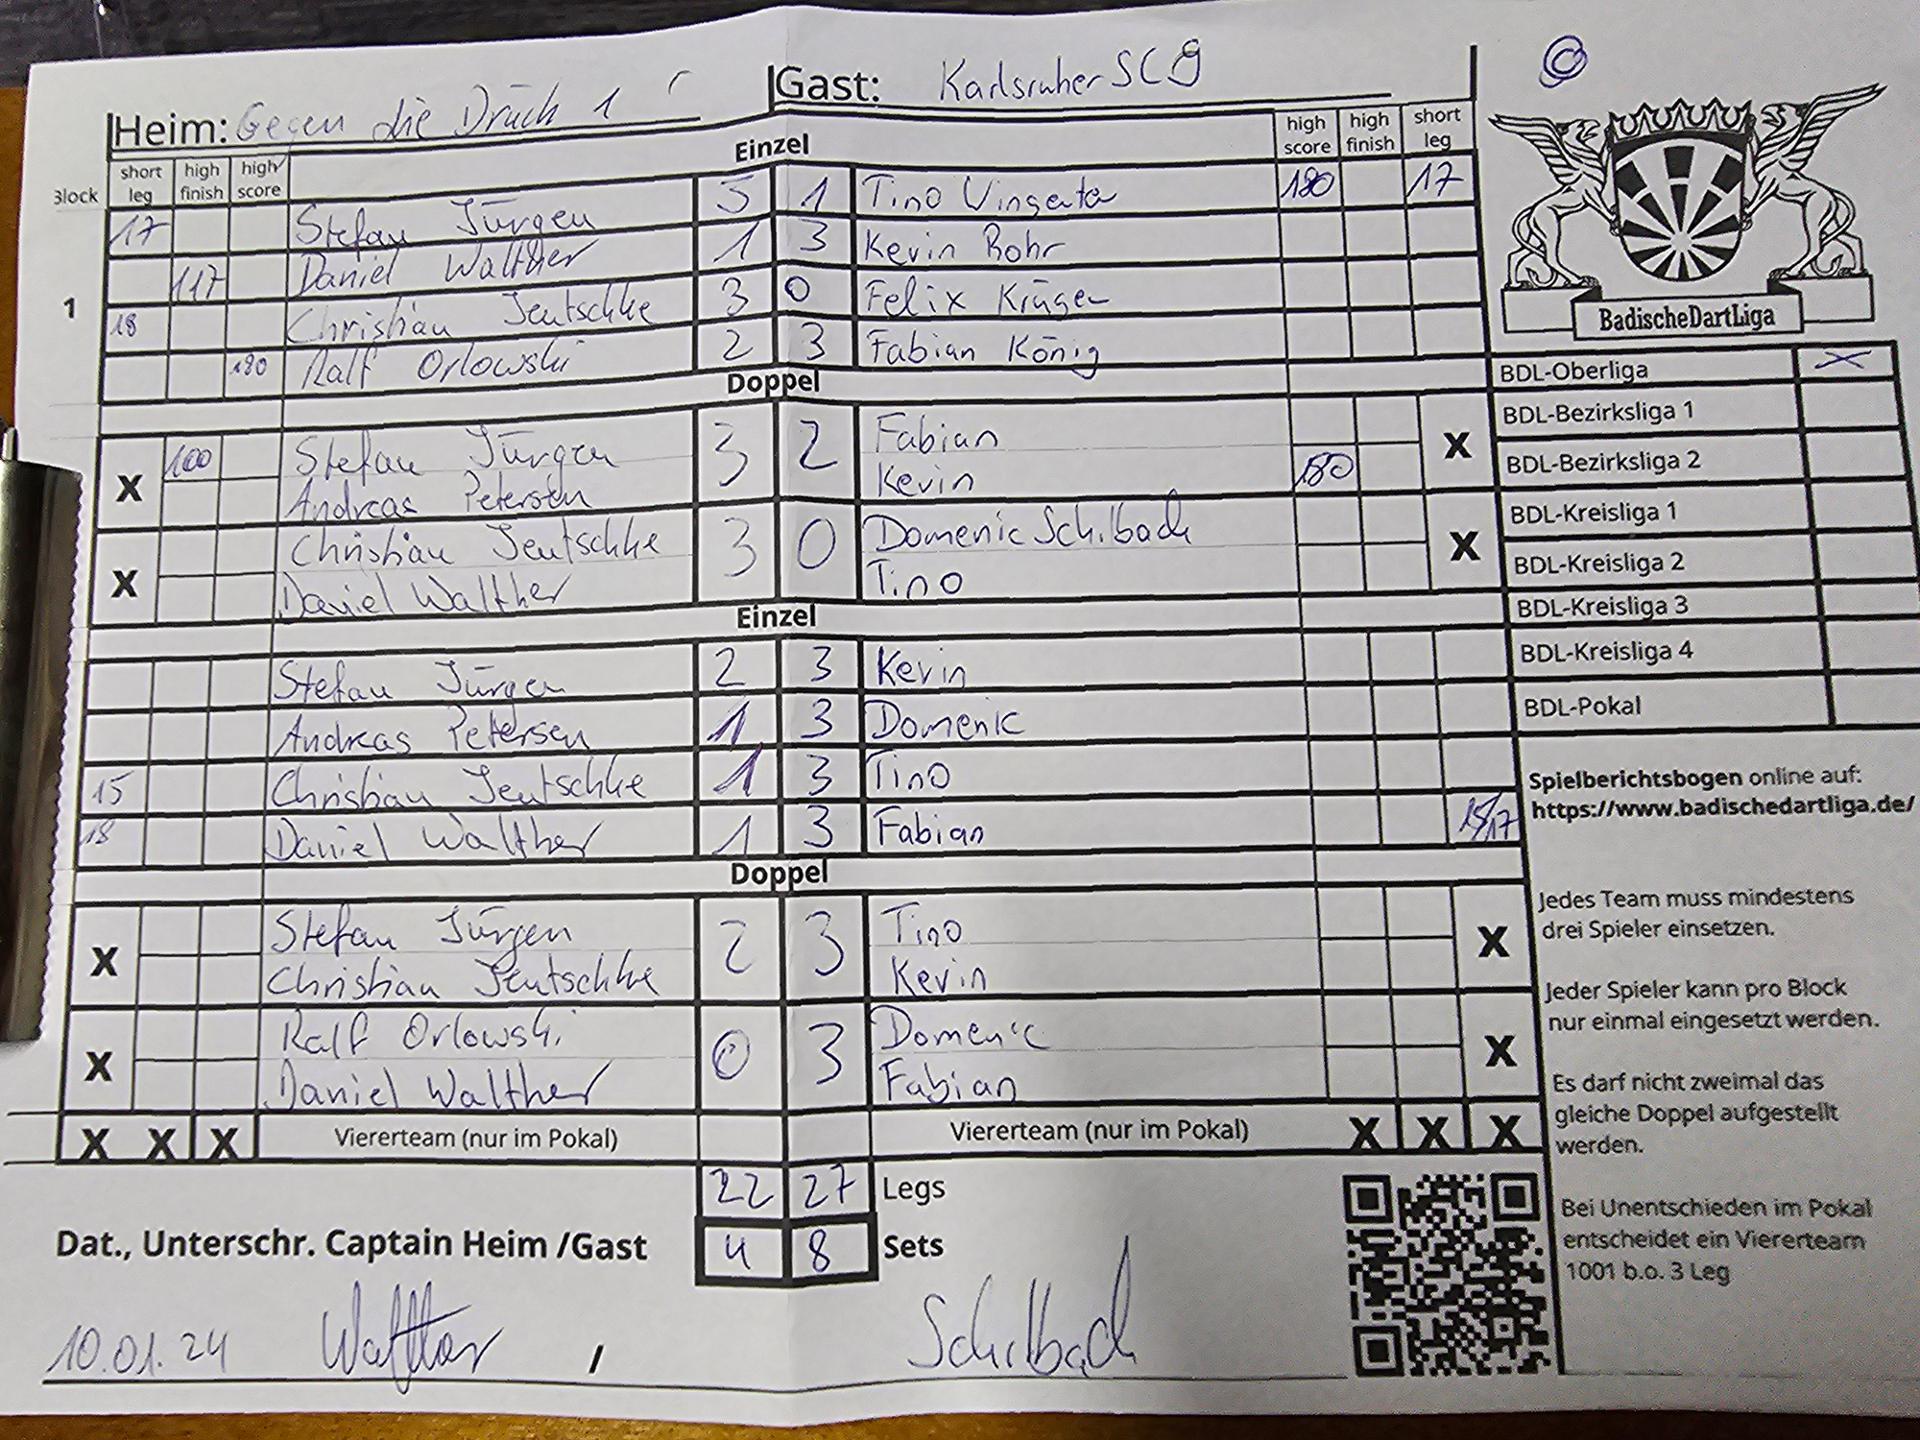 Heim: Gegen die Druck 1 Gast: Karlsruher SC 9
Einzel
Block short leg high finish high score high score high finish short leg
1
17 Stefan Jürgen 3 1 Tino 180 17
117 Daniel Walther 1 3 Kevin Rohr
18 Christian Jeutschke 3 0 Felix Krüger
180 Ralf Orlowski 2 3 Fabian König
Doppel
X 100 Stefan Jürgen 3 2 Fabian X
Andreas Petersen Kevin 180
X Christian Jeutschke 3 0 Domenic Schilbach X
Daniel Walther Tino
Einzel
Stefan Jürgen 2 3 Kevin
Andreas Petersen 1 3 Domenic
15 Christian Jeutschke 1 3 Tino
18 Daniel Walther 1 3 Fabian 15/17
Doppel
X Stefan Jürgen 2 3 Tino X
Christian Jeutschke Kevin
X Ralf Orlowski 0 3 Domenic X
Daniel Walther Fabian
X X X Viererteam (nur im Pokal) Viererteam (nur im Pokal) X X X
22 27 Legs
4 8 Sets
Dat., Unterschr. Captain Heim /Gast
10.01.24 Walther / Schilbach
BadischeDartLiga
BDL-Oberliga X
BDL-Bezirksliga 1
BDL-Bezirksliga 2
BDL-Kreisliga 1
BDL-Kreisliga 2
BDL-Kreisliga 3
BDL-Kreisliga 4
BDL-Pokal
Spielberichtsbogen online auf:
https://www.badischedartliga.de/
Jedes Team muss mindestens
drei Spieler einsetzen.
Jeder Spieler kann pro Block
nur einmal eingesetzt werden.
Es darf nicht zweimal das
gleiche Doppel aufgestellt
werden.
Bei Unentschieden im Pokal
entscheidet ein Viererteam
1001 b.o. 3 Leg